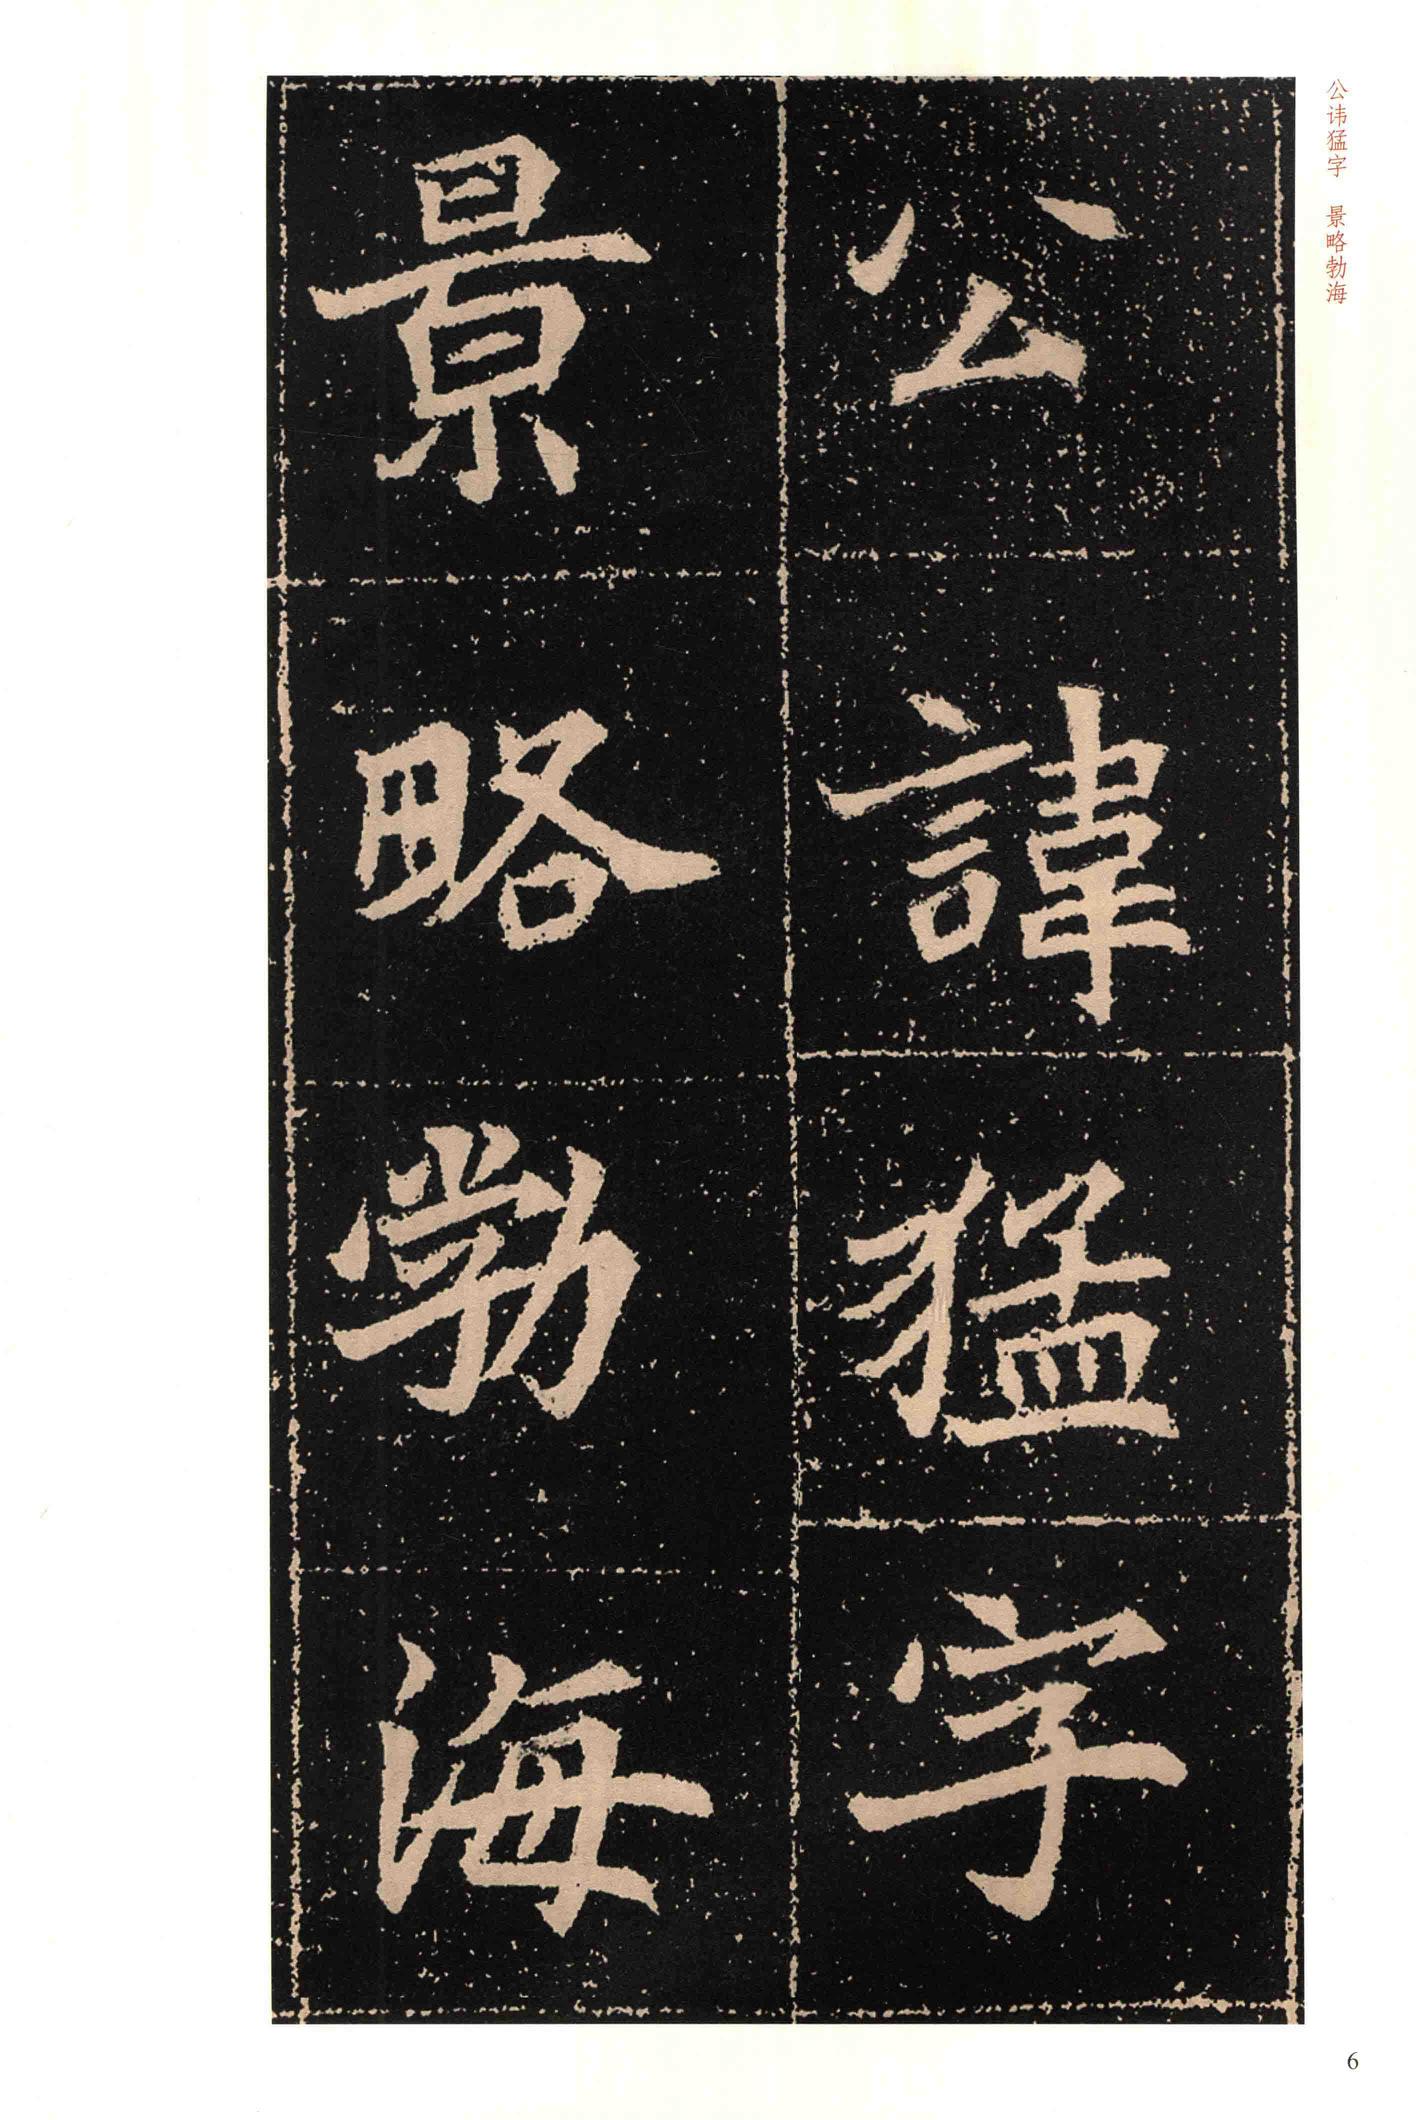 公讳猛字　景略勃海
公諱猛字
景略勃海
6